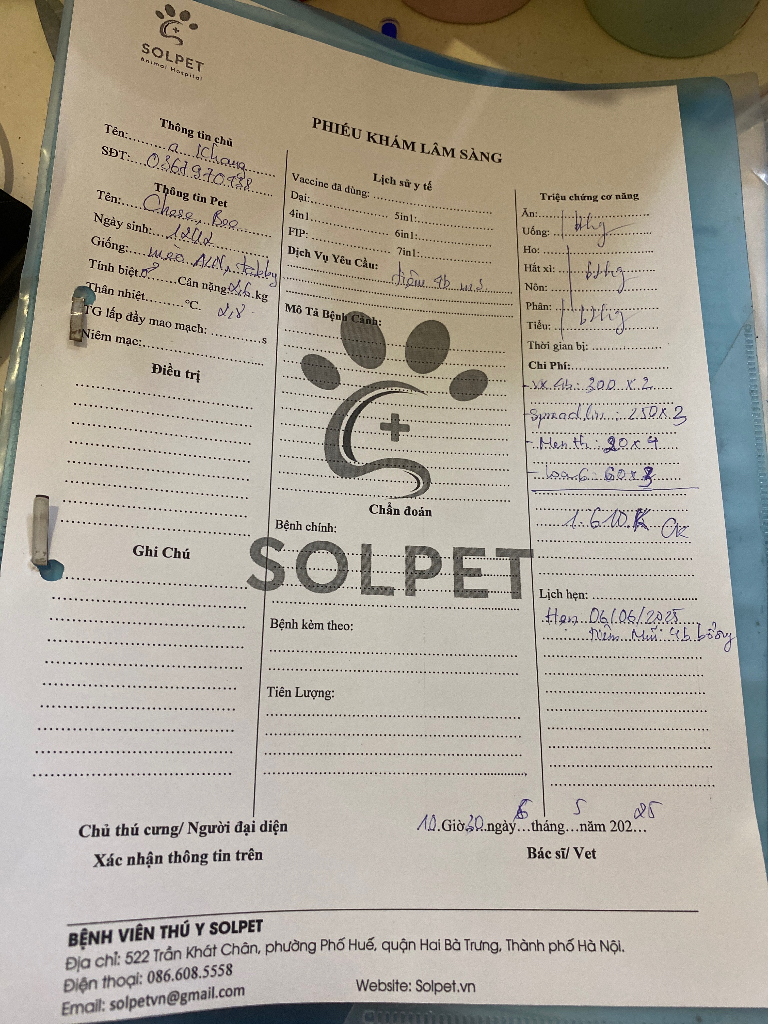 SOLPET
Animal Hospital
PHIẾU KHÁM LÂM SÀNG
Thông tin chủ
Tên: a Khang
SĐT: 0367970738
Thông tin Pet
Tên: Chase, Boo
Ngày sinh:
Giống: mèo ALN, tabby
Tính biệt: ♂ Cân nặng: 2,6 kg
Thân nhiệt: °C. 2,8
TG lấp đầy mao mạch: s
Niêm mạc:
Điều trị
Ghi Chú
Lịch sử y tế
Vaccine đã dùng:
Dại:
4in1 5in1:
FIP: 6in1:
7in1:
Dịch Vụ Yêu Cầu: tiêm 4b m3
Mô Tả Bệnh Cảnh:
Chẩn đoán
Bệnh chính:
SOLPET
Bệnh kèm theo:
Tiên Lượng:
Triệu chứng cơ năng
Ăn:
Uống: bthg
Ho:
Hắt xì: bthg
Nôn:
Phân:
Tiểu: bthg
Thời gian bị:
Chi Phí:
- vx 4b: 300 x 2
- Spradlin: 250 x 3
- Menth: 20 x 4
- 60 x 3
1.610K CK
Lịch hẹn:
Hẹn 06/06/2025
tiêm Mũi 4b
Chủ thú cưng/ Người đại diện
Xác nhận thông tin trên
10 Giờ 30 ngày 6 tháng 5 năm 202 25
Bác sĩ/ Vet
BỆNH VIỆN THÚ Y SOLPET
Địa chỉ: 522 Trần Khát Chân, phường Phố Huế, quận Hai Bà Trưng, Thành phố Hà Nội.
Điện thoại: 086.608.5558
Email: solpetvn@gmail.com
Website: Solpet.vn